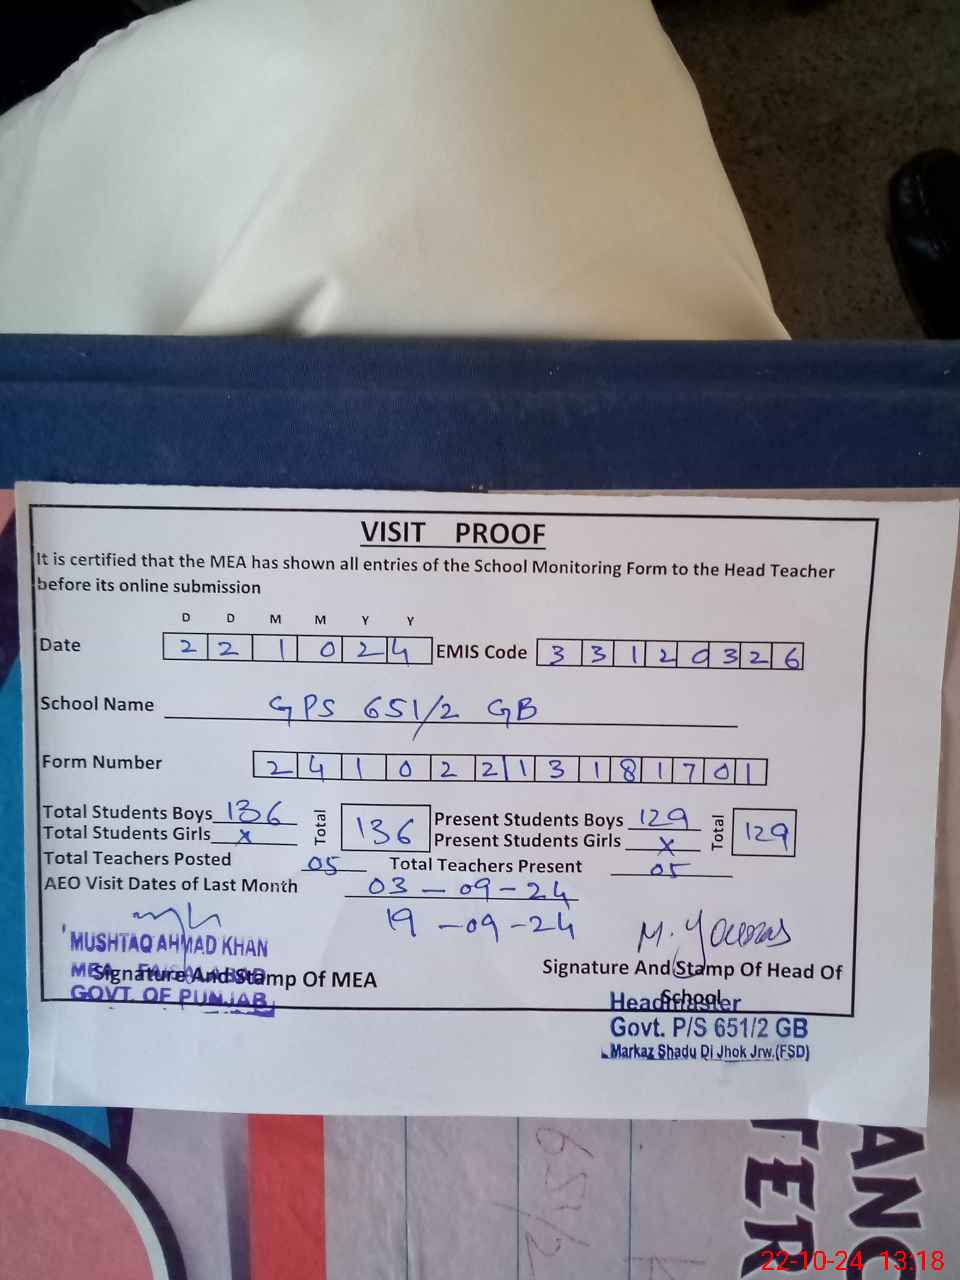 VISIT PROOF
It is certified that the MEA has shown all entries of the School Monitoring Form to the Head Teacher
before its online submission
D D M M Y Y
Date 2 2 1 0 2 4 EMIS Code 3 3 1 2 0 3 2 6
School Name GPS 651/2 GB
Form Number 2 4 1 0 2 2 1 3 1 8 1 7 0 1
Total Students Boys 136 Total 136 Present Students Boys 129 Total 129
Total Students Girls x Present Students Girls x
Total Teachers Posted 05 Total Teachers Present 05
AEO Visit Dates of Last Month 03-09-24
19-09-24
MUSHTAQ AHMAD KHAN
MEA FAISALABAD
Signature And Stamp Of MEA
GOVT. OF PUNJAB
Signature And Stamp Of Head Of
School
Headmaster
Govt. P/S 651/2 GB
Markaz Shadu Di Jhok Jrw.(FSD)
651/2
ANC
TER
22-10-24 13:18